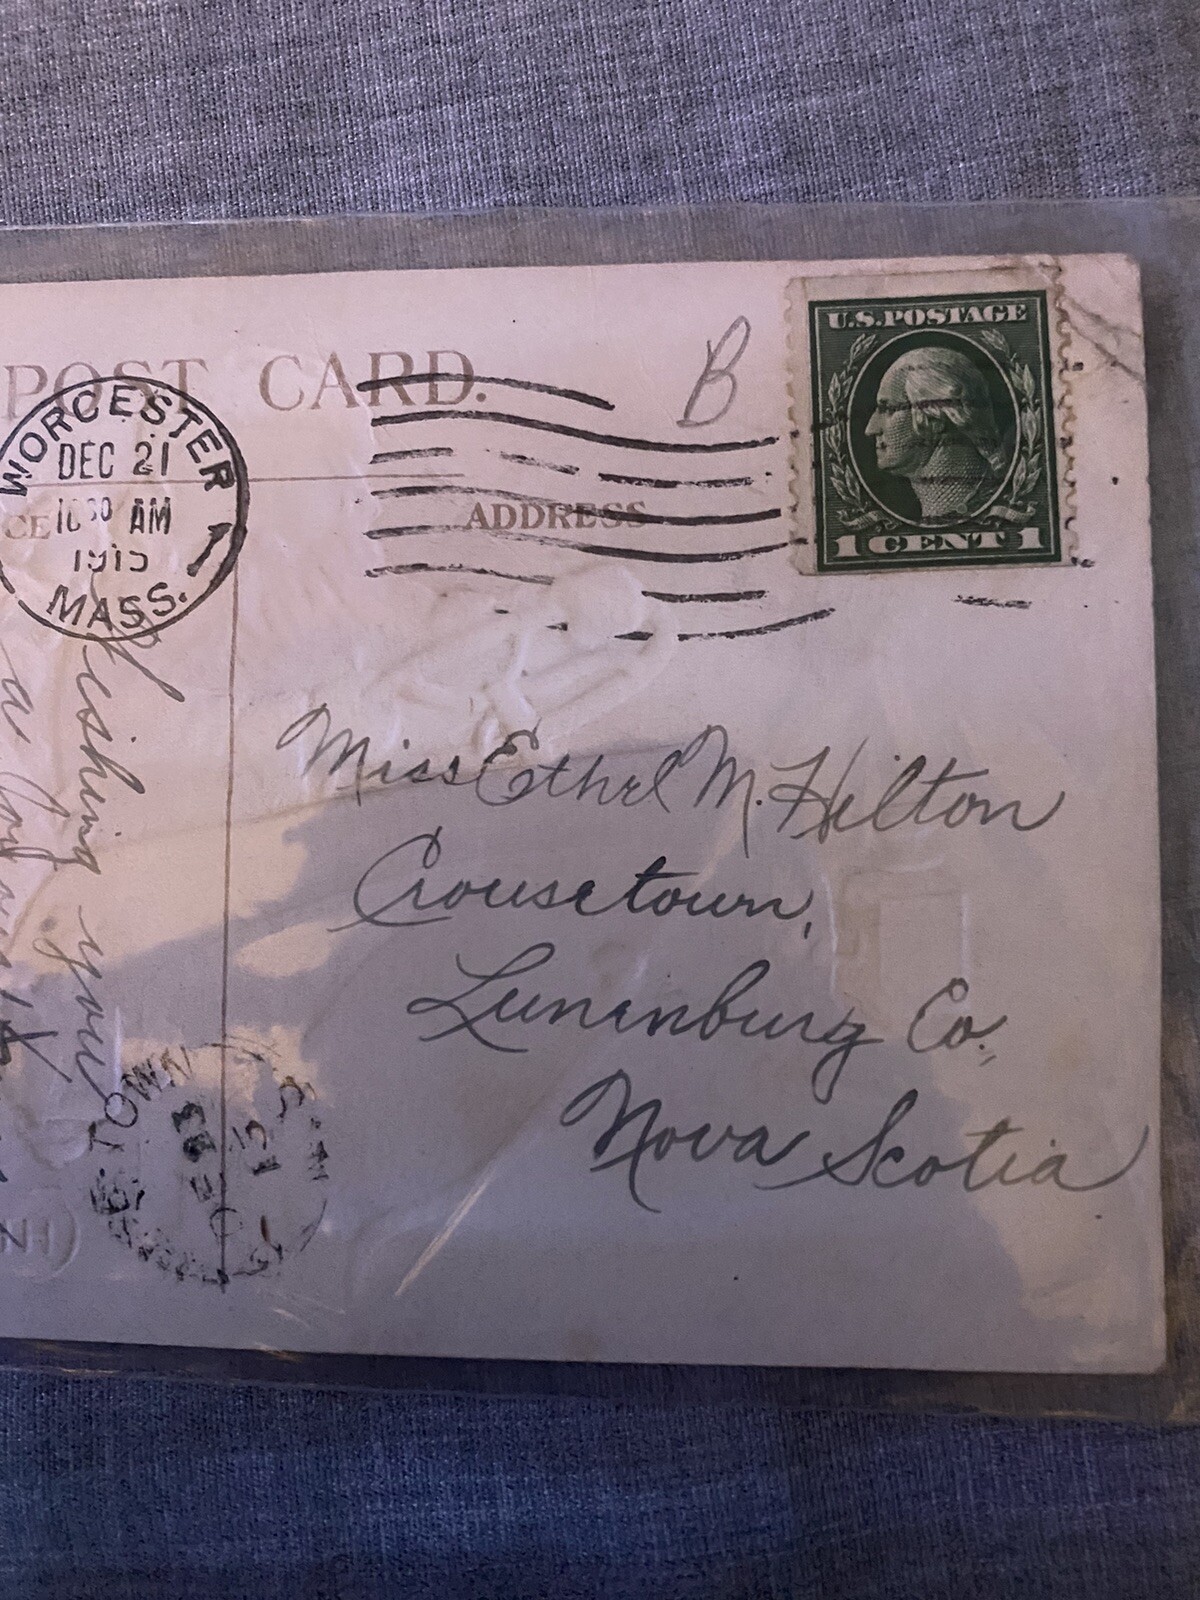 POST CARD.
B
U.S. POSTAGE
1 CENT 1
WORCESTER
DEC 21
10 30 AM
1915
MASS.
ADDRESS
Wishing you
a
Miss Ethel M. Hilton
Crousetown,
Lunenburg Co.,
Nova Scotia
TOWN
23
15